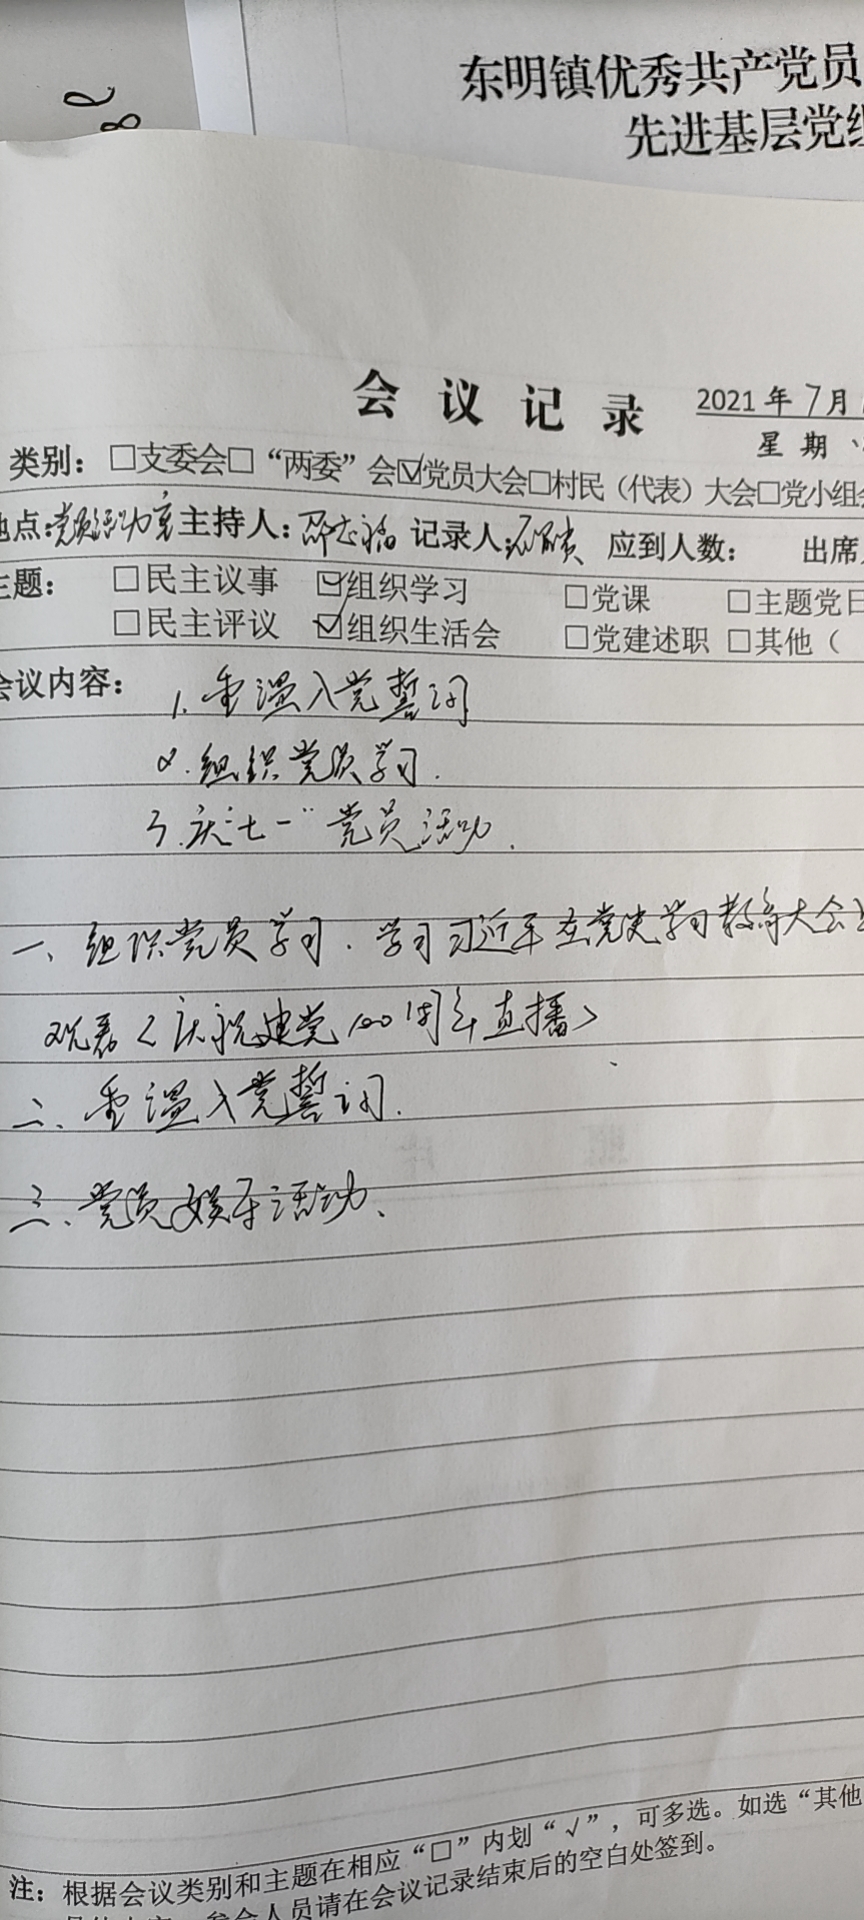 东明镇优秀共产党员
先进基层党组
会议记录
2021年7月
星期
类别：□支委会□“两委”会☑党员大会□村民（代表）大会□党小组会
地点：党员活动室 主持人： 记录人： 应到人数： 出席
主题： □民主议事 ☑组织学习 □党课 □主题党日
□民主评议 ☑组织生活会 □党建述职 □其他（
会议内容： 1.重温入党誓词
2.组织党员学习.
3.庆“七一”党员活动.
一、组织党员学习.学习习近平在党史学习教育大会
观看<庆祝建党100周年直播>
二、重温入党誓词.
三、党员娱乐活动、
注：根据会议类别和主题在相应“□”内划“√”，可多选。如选“其他
参会人员请在会议记录结束后的空白处签到。